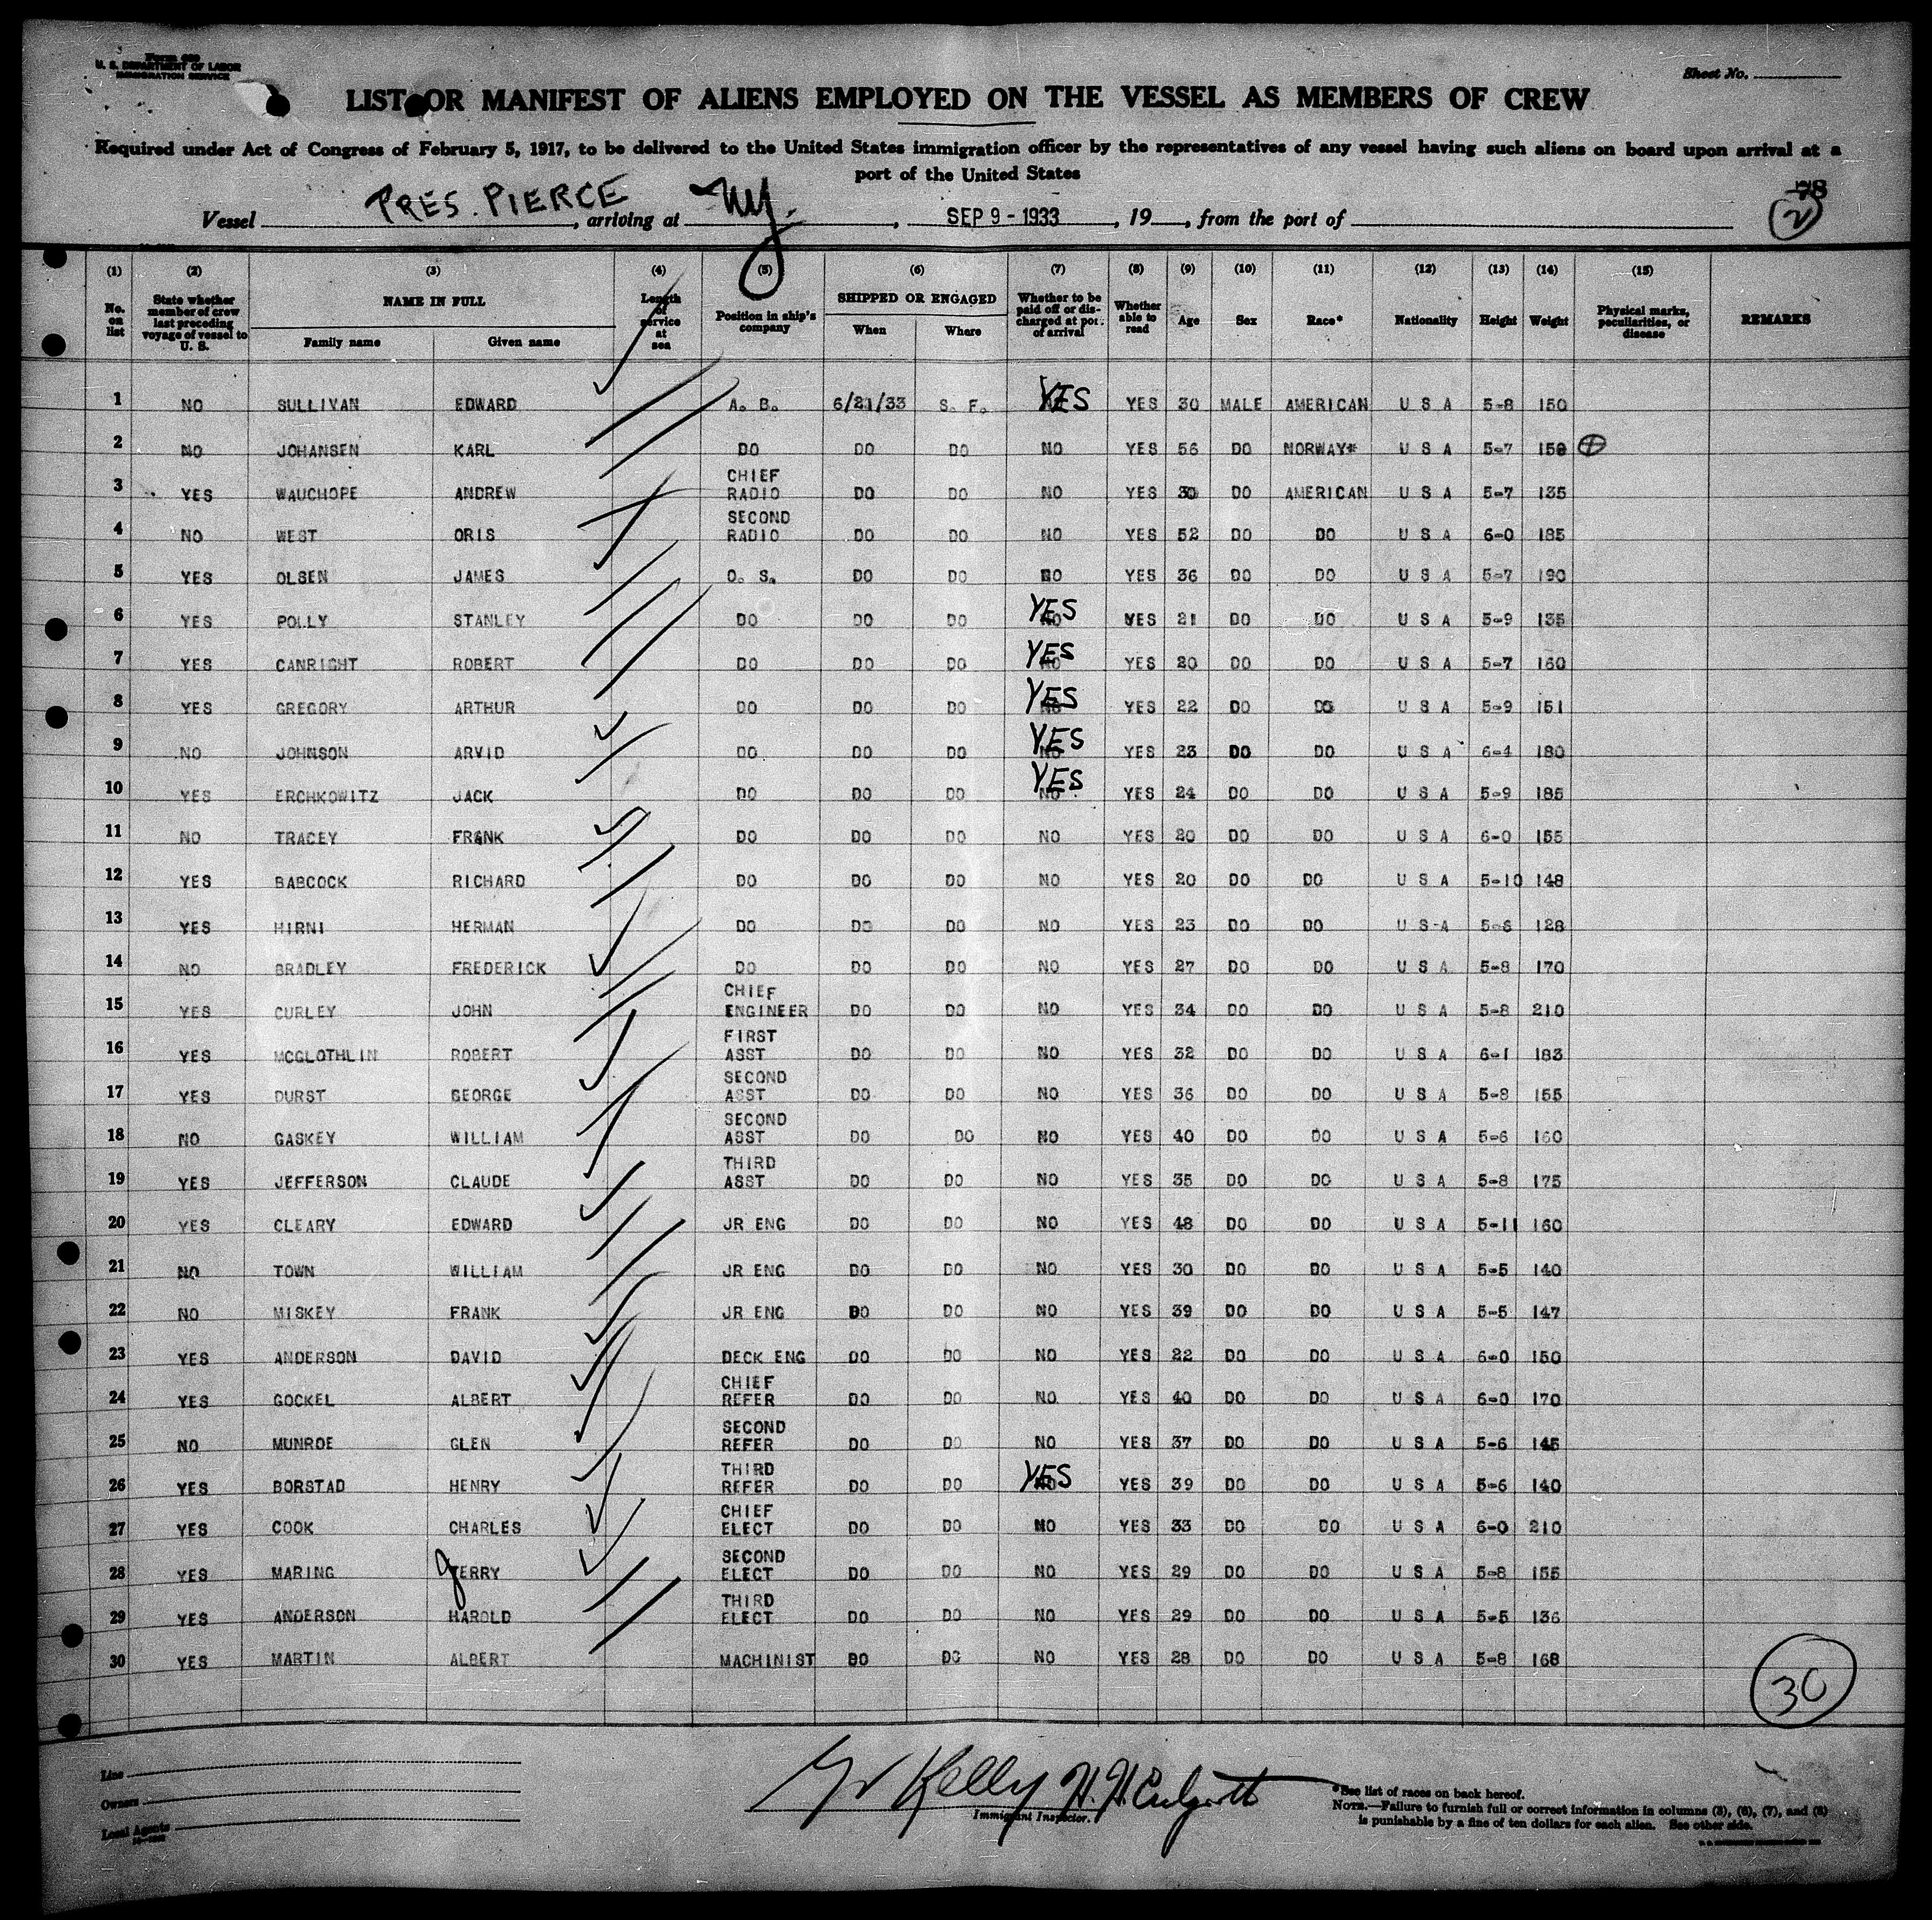 Form 680
U. S. DEPARTMENT OF LABOR
IMMIGRATION SERVICE
Sheet No.
LIST OR MANIFEST OF ALIENS EMPLOYED ON THE VESSEL AS MEMBERS OF CREW
Required under Act of Congress of February 5, 1917, to be delivered to the United States immigration officer by the representatives of any vessel having such aliens on board upon arrival at a
port of the United States
78
2
Vessel PRES. PIERCE, arriving at NY., SEP 9 - 1933, 19, from the port of
(1) (2) (3) (4) (5) (6) (7) (8) (9) (10) (11) (12) (13) (14) (15)
No. on list State whether member of crew last preceding voyage of vessel to U. S. NAME IN FULL Family name Given name Length of service at sea Position in ship's company SHIPPED OR ENGAGED When Where Whether to be paid off or discharged at port of arrival Whether able to read Age Sex Race* Nationality Height Weight Physical marks, peculiarities, or disease REMARKS
1 NO SULLIVAN EDWARD A. B. 6/21/33 S. F. YES YES 30 MALE AMERICAN U S A 5-8 150
2 NO JOHANSEN KARL DO DO DO NO YES 56 DO NORWAY* U S A 5-7 150
3 YES WAUCHOPE ANDREW CHIEF RADIO DO DO NO YES 30 DO AMERICAN U S A 5-7 135
4 NO WEST ORIS SECOND RADIO DO DO NO YES 52 DO DO U S A 6-0 185
5 YES OLSEN JAMES O. S. DO DO NO YES 36 DO DO U S A 5-7 190
6 YES POLLY STANLEY DO DO DO YES NO YES 21 DO DO U S A 5-9 135
7 YES CANRIGHT ROBERT DO DO DO YES NO YES 20 DO DO U S A 5-7 160
8 YES GREGORY ARTHUR DO DO DO YES NO YES 22 DO DO U S A 5-9 151
9 NO JOHNSON ARVID DO DO DO YES NO YES 23 DO DO U S A 6-4 180
10 YES ERCHKOWITZ JACK DO DO DO YES NO YES 24 DO DO U S A 5-9 185
11 NO TRACEY FRANK DO DO DO NO YES 20 DO DO U S A 6-0 155
12 YES BABCOCK RICHARD DO DO DO NO YES 20 DO DO U S A 5-10 148
13 YES HIRNI HERMAN DO DO DO NO YES 23 DO DO U S A 5-6 128
14 NO BRADLEY FREDERICK DO DO DO NO YES 27 DO DO U S A 5-8 170
15 YES CURLEY JOHN CHIEF ENGINEER DO DO NO YES 34 DO DO U S A 5-8 210
16 YES MCGLOTHLIN ROBERT FIRST ASST DO DO NO YES 32 DO DO U S A 6-1 183
17 YES DURST GEORGE SECOND ASST DO DO NO YES 36 DO DO U S A 5-8 155
18 NO GASKEY WILLIAM SECOND ASST DO DO NO YES 40 DO DO U S A 5-6 160
19 YES JEFFERSON CLAUDE THIRD ASST DO DO NO YES 35 DO DO U S A 5-8 175
20 YES CLEARY EDWARD JR ENG DO DO NO YES 48 DO DO U S A 5-11 160
21 NO TOWN WILLIAM JR ENG DO DO NO YES 30 DO DO U S A 5-5 140
22 NO MISKEY FRANK JR ENG DO DO NO YES 39 DO DO U S A 5-5 147
23 YES ANDERSON DAVID DECK ENG DO DO NO YES 22 DO DO U S A 6-0 150
24 YES GOCKEL ALBERT CHIEF REFER DO DO NO YES 40 DO DO U S A 6-0 170
25 NO MUNROE GLEN SECOND REFER DO DO NO YES 37 DO DO U S A 5-6 145
26 YES BORSTAD HENRY THIRD REFER DO DO YES NO YES 39 DO DO U S A 5-6 140
27 YES COOK CHARLES CHIEF ELECT DO DO NO YES 33 DO DO U S A 6-0 210
28 YES MARING JERRY SECOND ELECT DO DO NO YES 29 DO DO U S A 5-8 155
29 YES ANDERSON HAROLD THIRD ELECT DO DO NO YES 29 DO DO U S A 5-5 136
30 YES MARTIN ALBERT MACHINIST DO DO NO YES 28 DO DO U S A 5-8 168
30
Line
Owners
Local Agents
Kelly H. H.
Immigrant Inspector.
*See list of races on back hereof.
NOTE.—Failure to furnish full or correct information in columns (3), (6), (7), and (8)
is punishable by a fine of ten dollars for each alien. See other side.